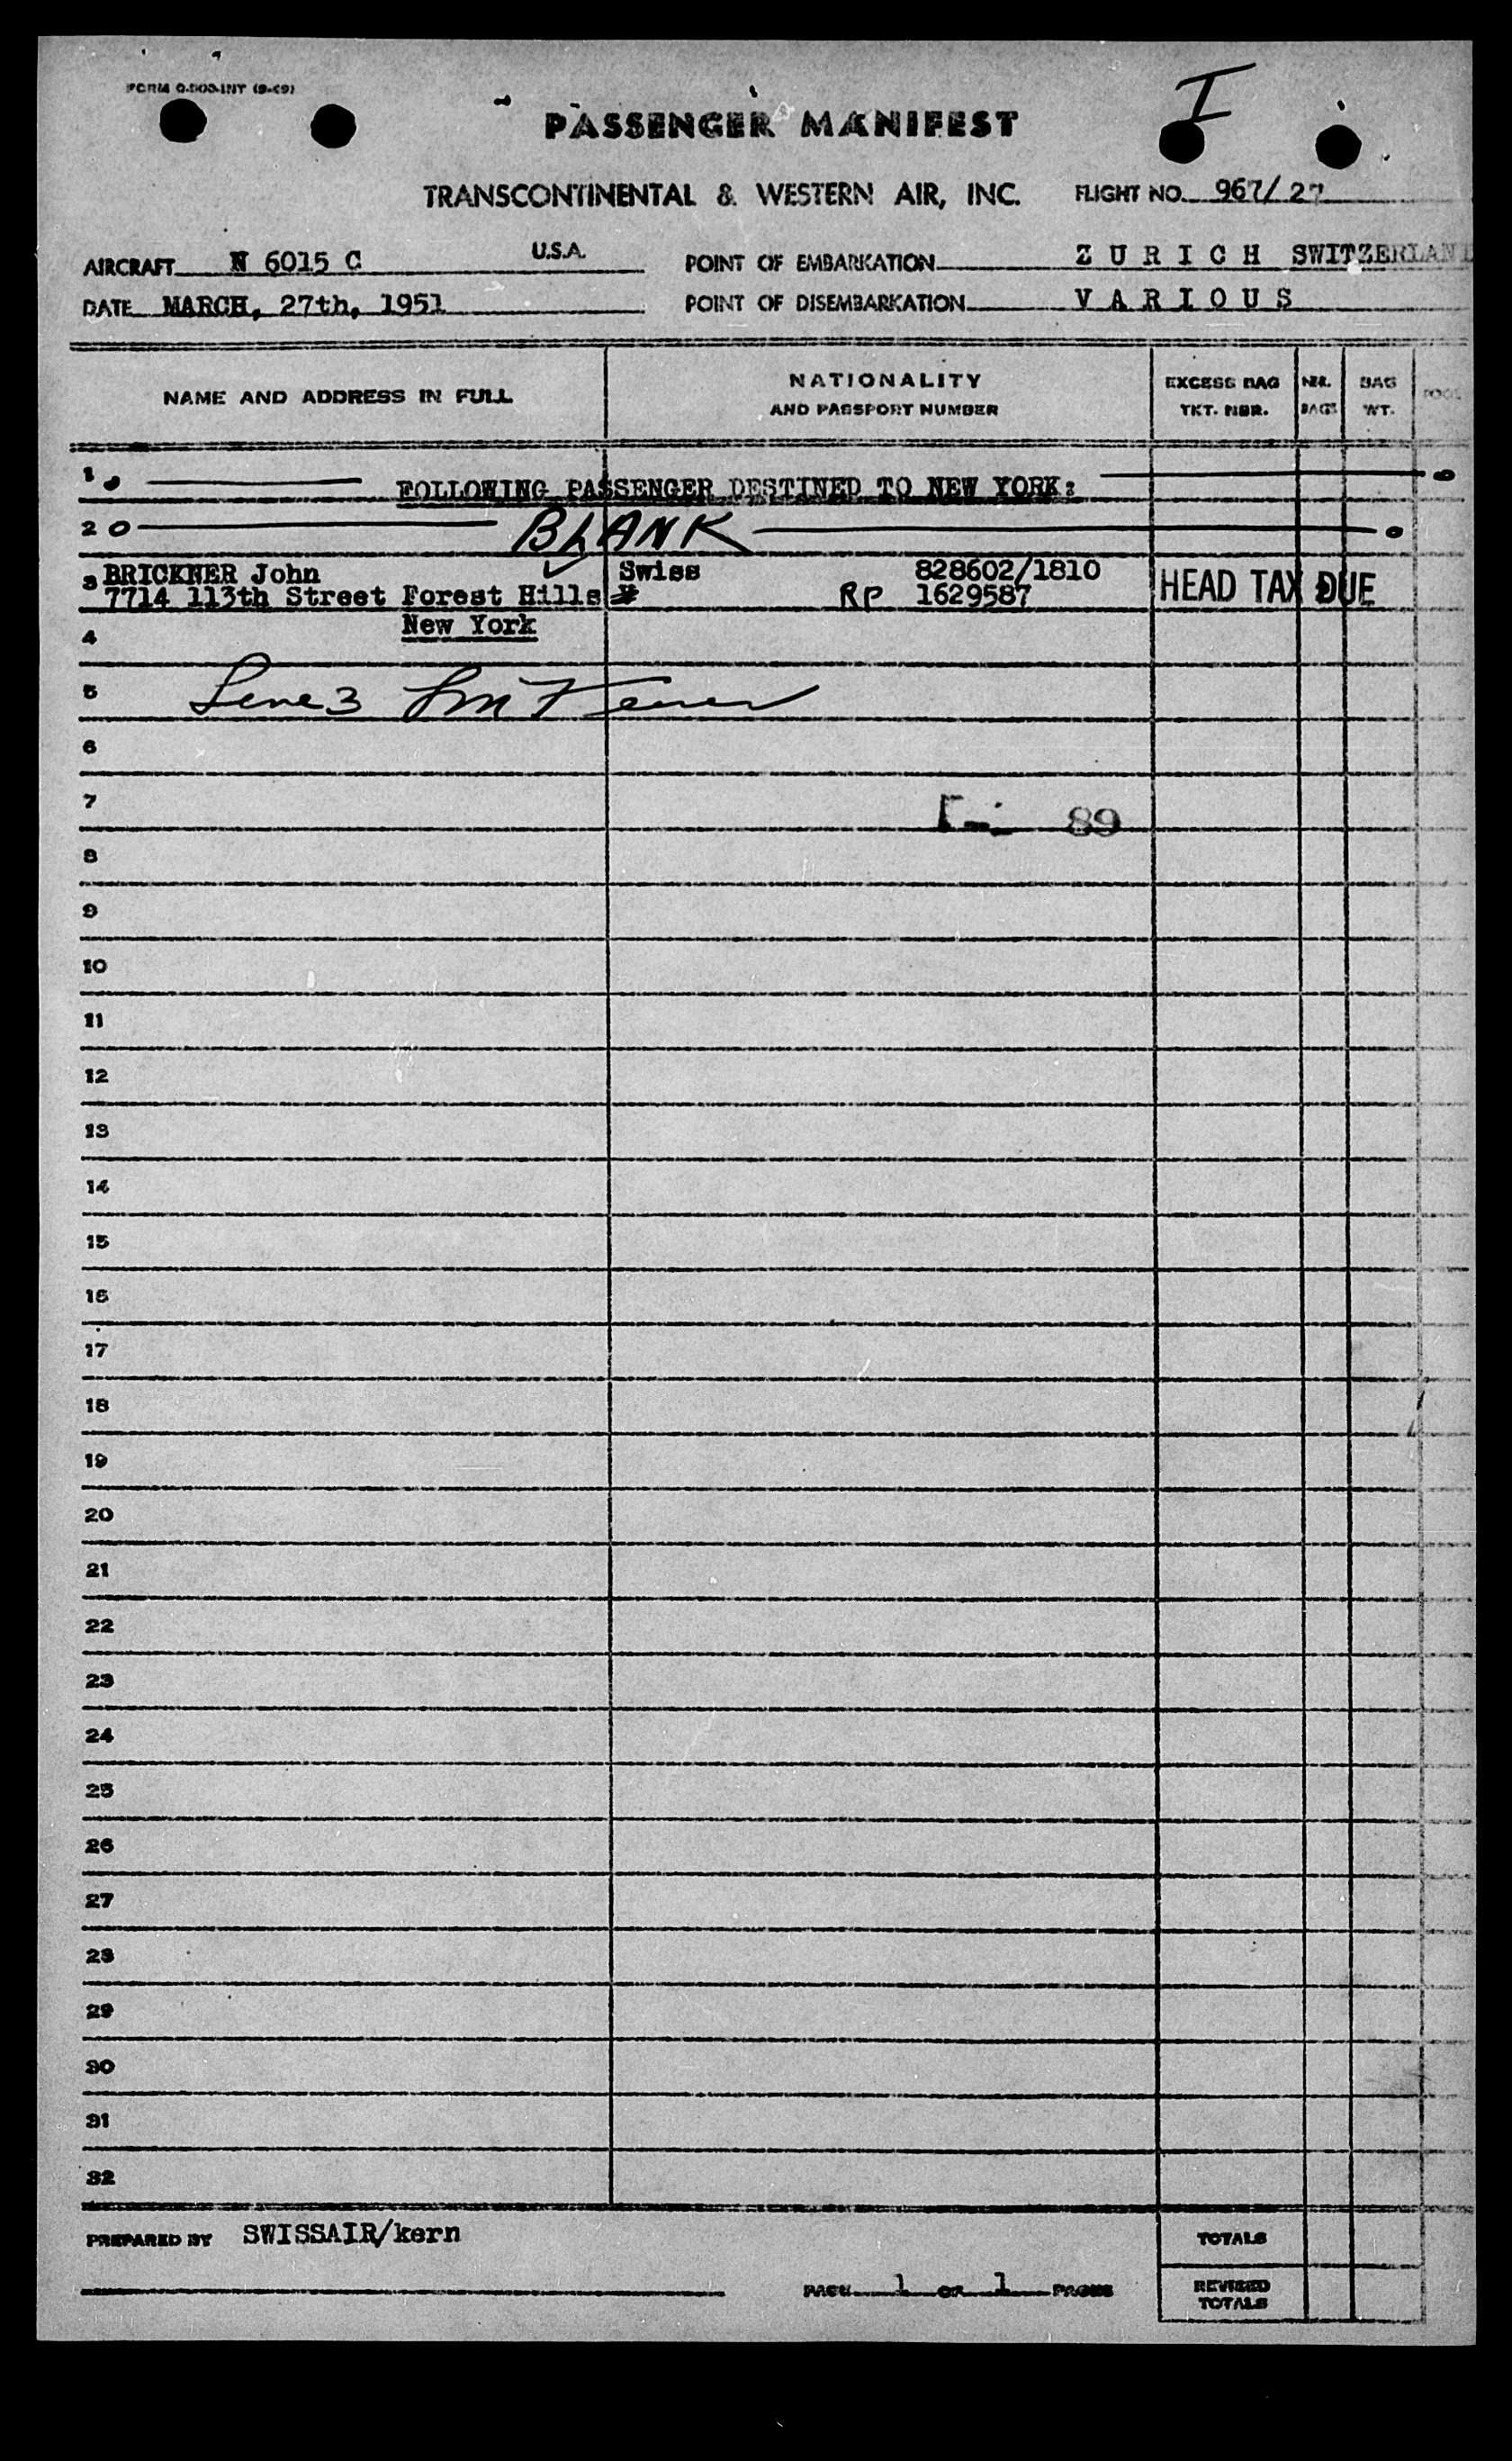 I
PASSENGER MANIFEST
TRANSCONTINENTAL & WESTERN AIR, INC. FLIGHT NO. 967/27
AIRCRAFT N 6015 C U.S.A. POINT OF EMBARKATION Z U R I C H SWITZERLAND
DATE MARCH, 27th, 1951 POINT OF DISEMBARKATION V A R I O U S
NAME AND ADDRESS IN FULL
NATIONALITY
AND PASSPORT NUMBER
EXCESS BAG
TKT. NBR.
NBR.
BAGS
BAG
WT.
1 FOLLOWING PASSENGER DESTINED TO NEW YORK:
2 BLANK
3 BRICKNER John Swiss 828602/1810
7714 113th Street Forest Hills RP 1629587 HEAD TAX DUE
New York
4
5 Line 3
6
7 89
8
9
10
11
12
13
14
15
16
17
18
19
20
21
22
23
24
25
26
27
28
29
30
31
32
PREPARED BY SWISSAIR/kern
TOTALS
PAGE 1 OF 1 PAGES
REVISED
TOTALS